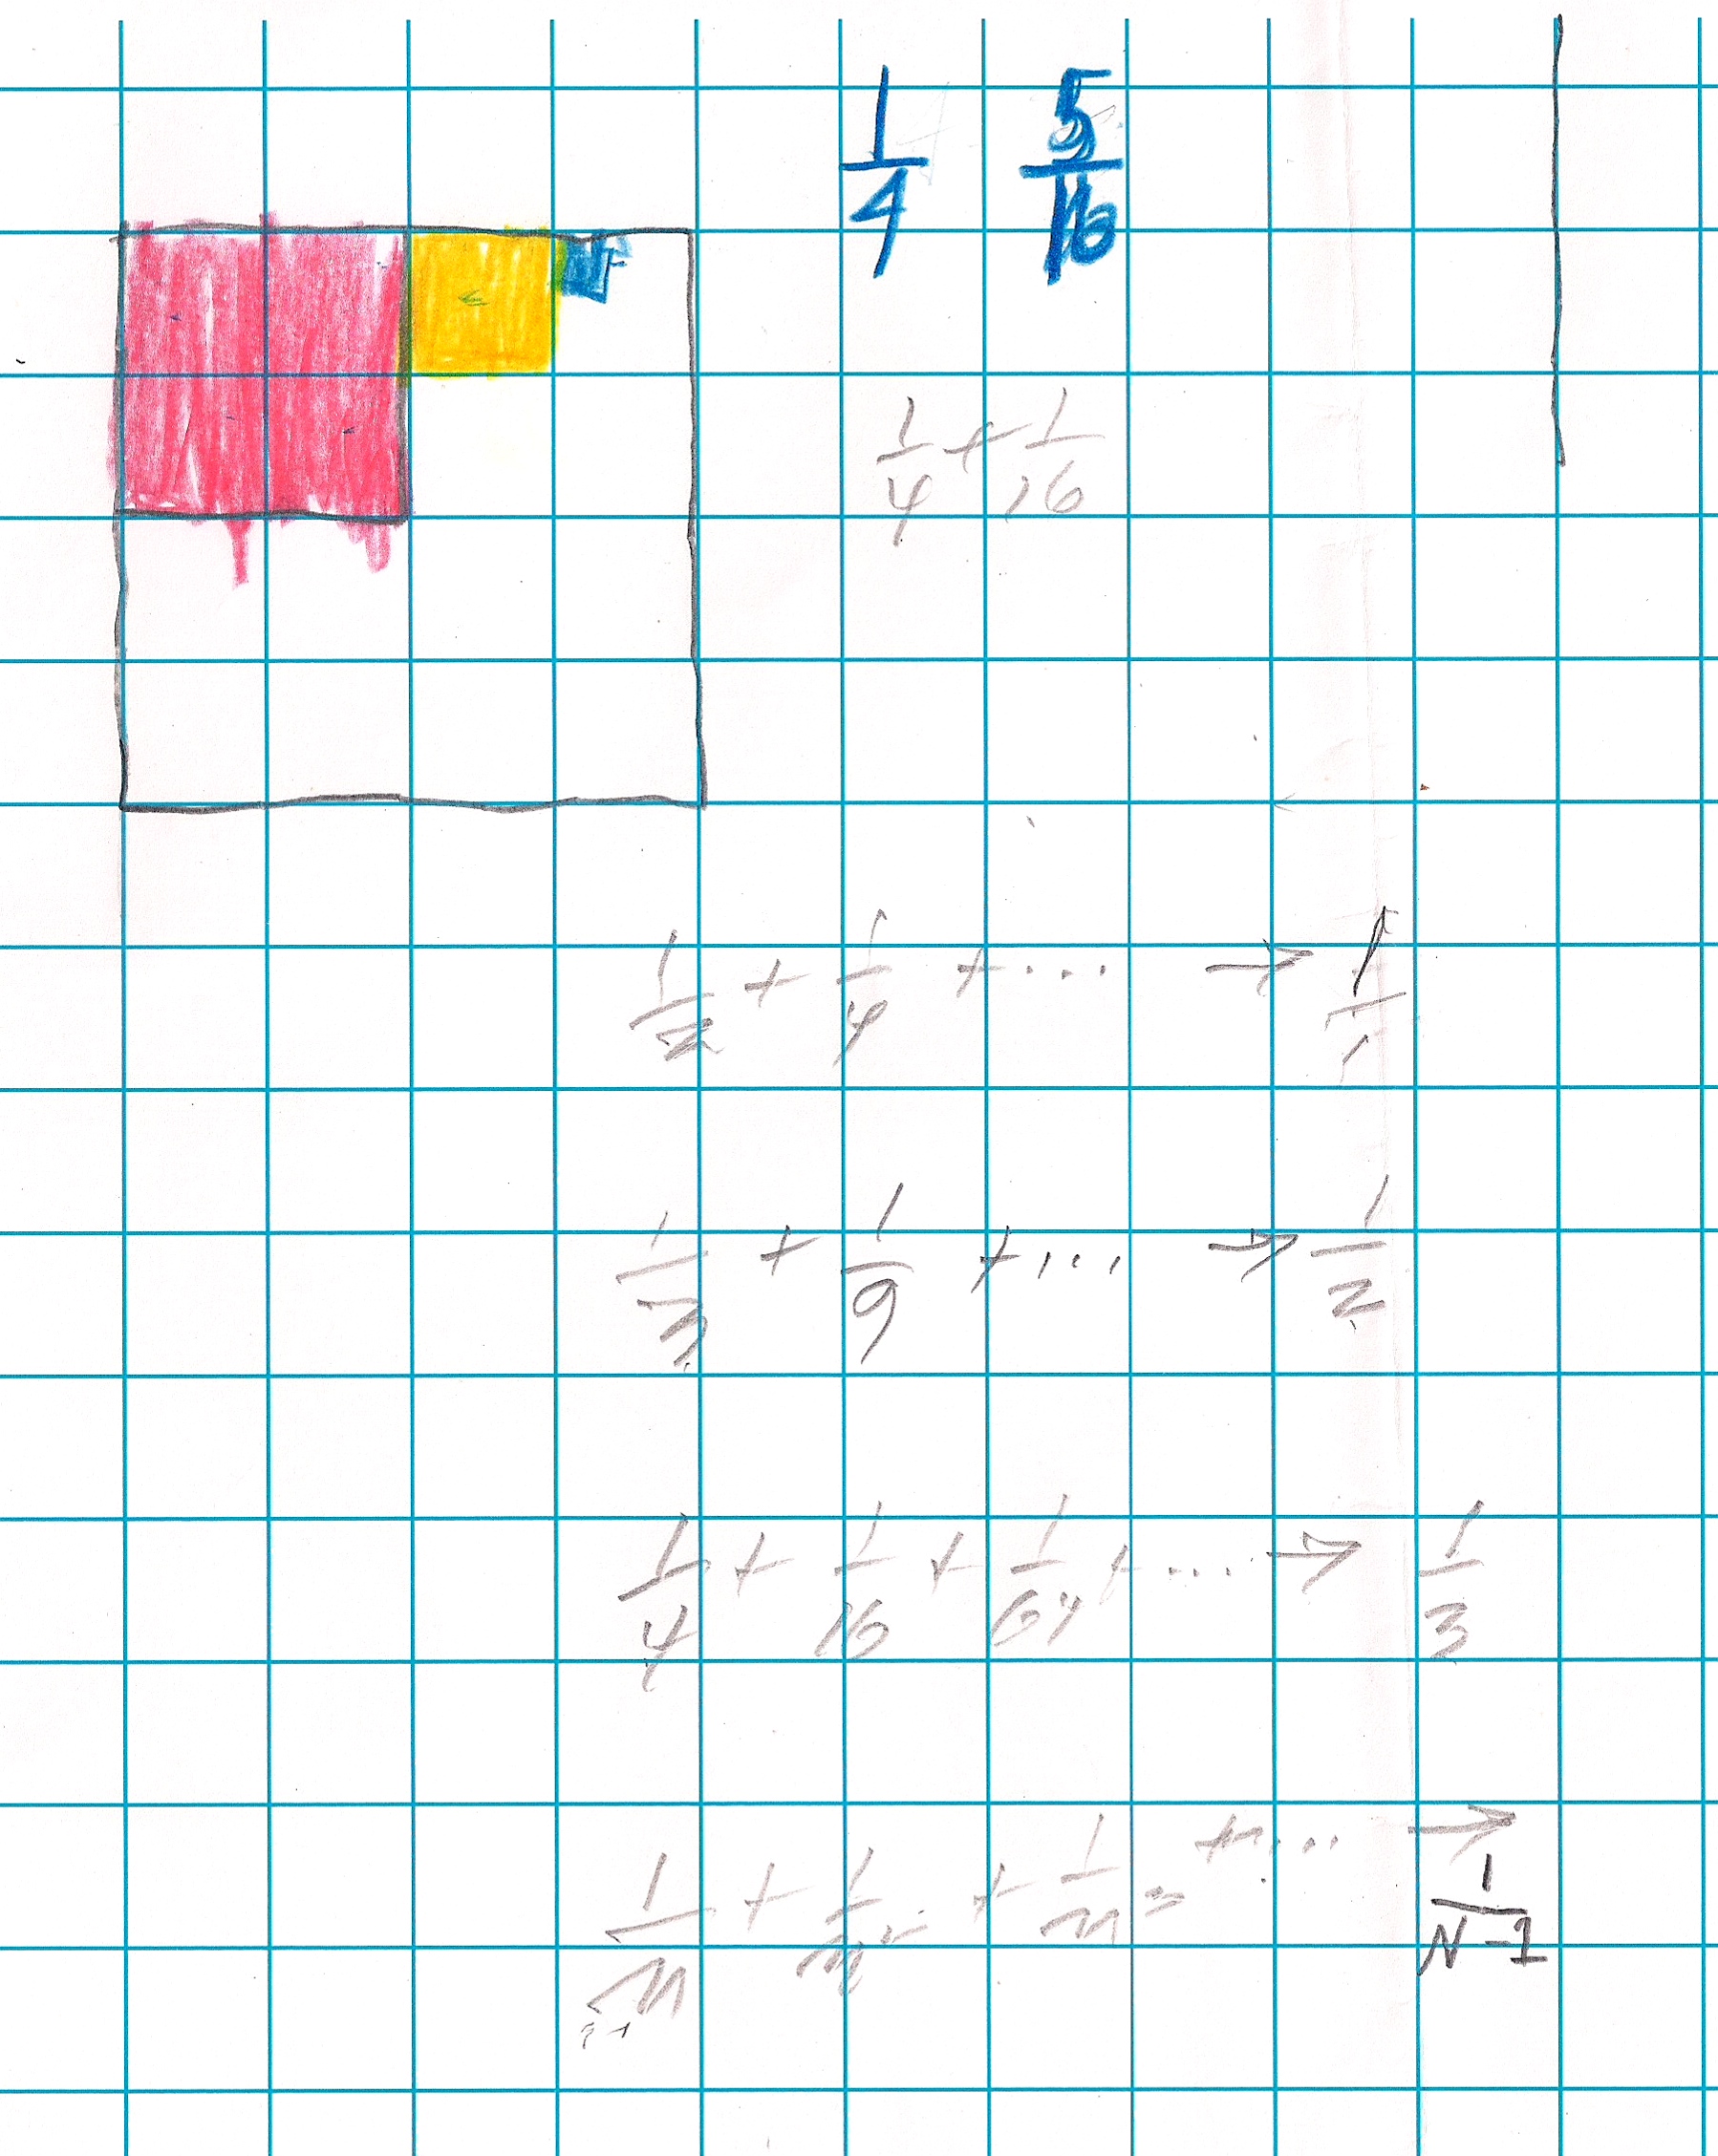 1/4 5/16
1/4 + 1/16
1/2 + 1/4 + ... → 1/1
1/3 + 1/9 + ... → 1/2
1/4 + 1/16 + 1/64 + ... → 1/3
1/n + 1/n² + 1/n³ + ... → 1/N-1